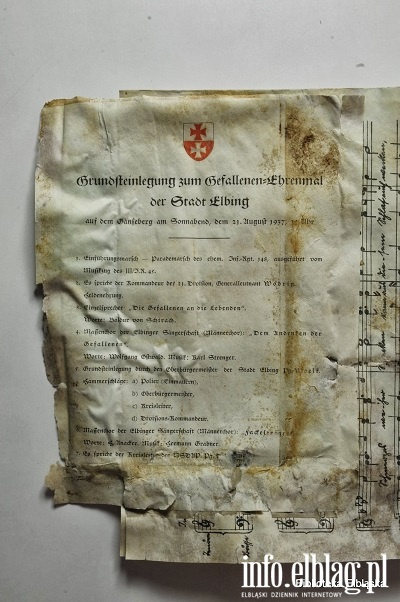 Grundsteinlegung zum Gefallenen-Ehrenmal
der Stadt Elbing
auf dem Gänseberg am Sonnabend, dem 21. August 1937, Uhr
1. Einführungsmarsch — Parademarsch des ehem. Inf.-Rgt. 148, ausgeführt vom
Musikkorps des III/J.R. 45.
2. Es spricht der Kommandeur der 11. Division, Generalleutnant
Feldmehrung.
3. Einzelsprecher: „Die Gefallenen an die Lebenden".
Worte: Baldur von Schirach.
4. Massenchor der Elbinger Sängerschaft (Männerchor): „Dem Andenken der
Gefallenen"
Worte: Wolfgang Oswald. Musik: Karl Stronger.
Grundsteinlegung durch den Oberbürgermeister der Stadt Elbing Pg. Woelk.
Hammerschläge: a) Polier (Einmauern),
b) Oberbürgermeister,
c) Kreisleiter,
d) Divisions-Kommandeur.
Massenchor der Elbinger Sängerschaft (Männerchor):
Worte: Anacker. Musik: Hermann Grabner.
7. Es spricht der Kreisleiter der NSDAP. Pg.
Biblioteka Elbląska
info.elblag.pl
ELBLĄSKI DZIENNIK INTERNETOWY